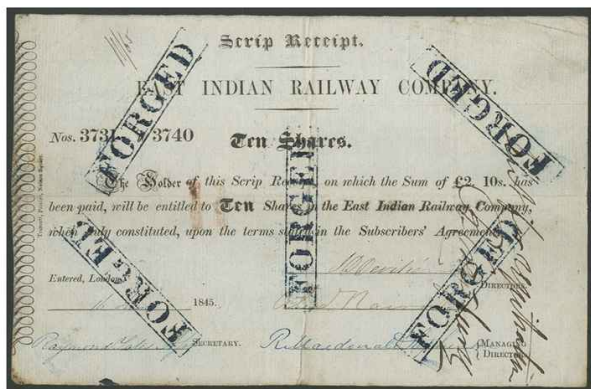 Scrip Receipt.
EAST INDIAN RAILWAY COMPANY.
Nos. 3731 3740
Ten Shares.
The Holder of this Scrip Receipt, on which the Sum of £2 10s. has
been paid, will be entitled to Ten Shares in the East Indian Railway Company,
when duly constituted, upon the terms stated in the Subscribers' Agreement.
Entered, London,
1845.
DIRECTORS.
SECRETARY.
MANAGING
DIRECTOR.
FORGED
FORGED
FORGED
FORGED
FORGED